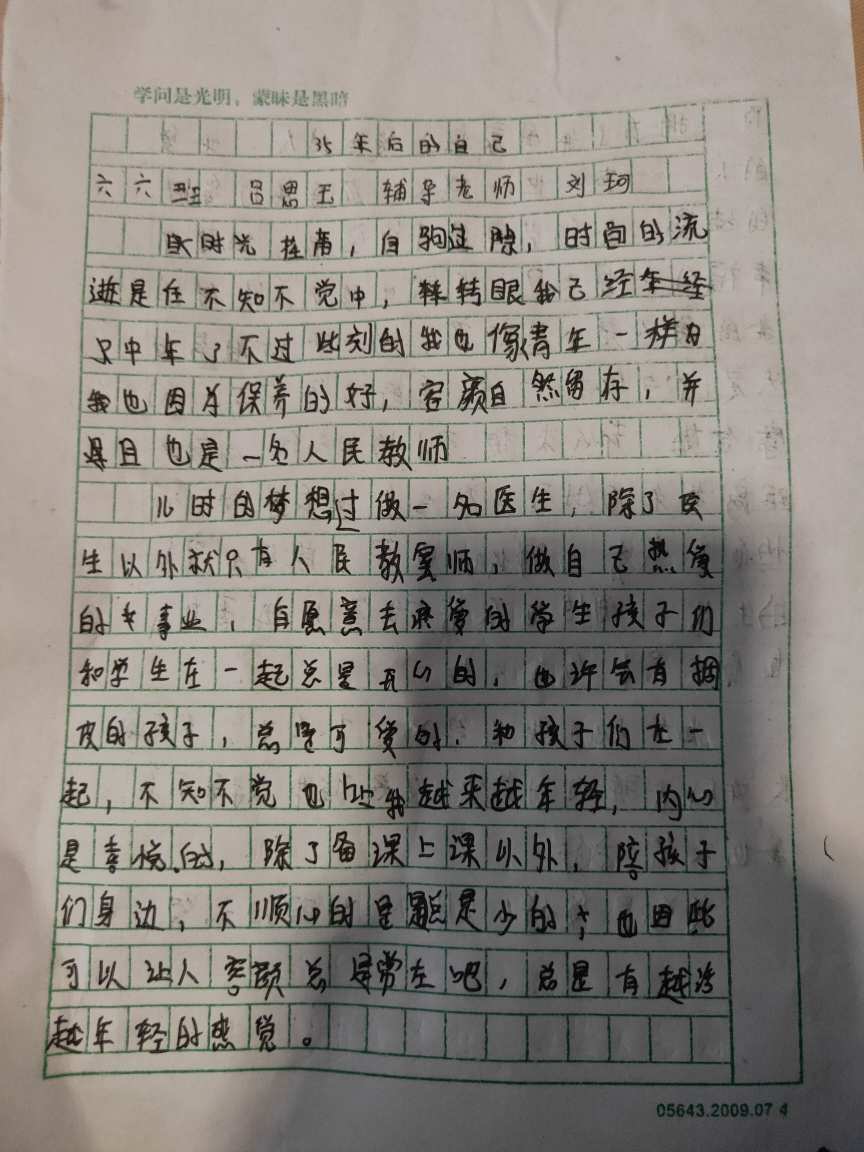 学问是光明，蒙昧是黑暗
35年后的自己
六六班 吕思玉 辅导老师 刘珂
时光荏苒，白驹过隙，时间的流
逝是在不知不觉中，转眼我已经年经
只中年了不过此刻的我也像青年一样因
我也因为保养的好，容颜自然留存，并
是且也是一名人民教师
儿时的梦想过做一名医生，除了医
生以外就只有人民教师，做自己热爱
的事业，自愿意去疼爱的学生孩子们
和学生在一起总是开心的，也许会有调
皮的孩子，总是可爱的，和孩子们在一
起，不知不觉也让我越来越年轻，内心
是喜悦的，除了备课上课以外，陪孩子
们身边，不顺心的是总是少的，也因此
可以让人容颜总是常在吧，总是有越活
越年轻的感觉。
05643.2009.07 4